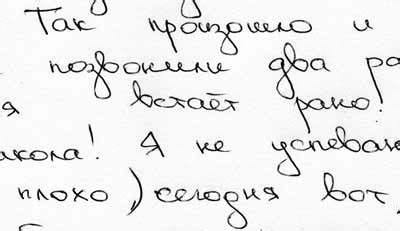 Так произошло и
позвонили два ра
я встаёт рано!
школа! Я не успеваю
плохо) сегодня вот,